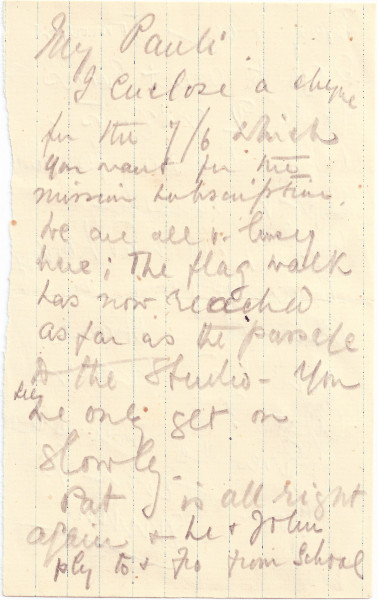 My Pauli
I enclose a cheque
for the 7/6 which
you want for the
mission subscription.
We are all v. busy
here; The flag walk
has now reached
as far as the
to the Studio - You
see
we only get on
slowly
Pat is all right
again & he & John
ply to & fro from School